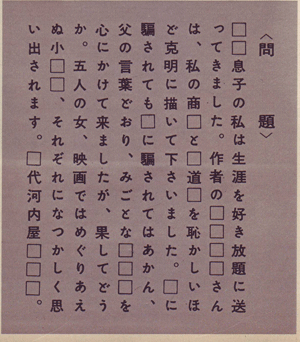 〈問題〉
□□息子の私は生涯を好き放題に送
ってきました。作者の□□□□さん
は、私の商□と□道□を恥かしいほ
ど克明に描いて下さいました。□に
騙されても□に騙されてはあかん、
父の言葉どおり、みごとな□□□を
心にかけて来ましたが、果してどう
か。五人の女、映画ではめぐりあえ
ぬ小□□、それぞれになつかしく思
い出されます。□代河内屋□□□。